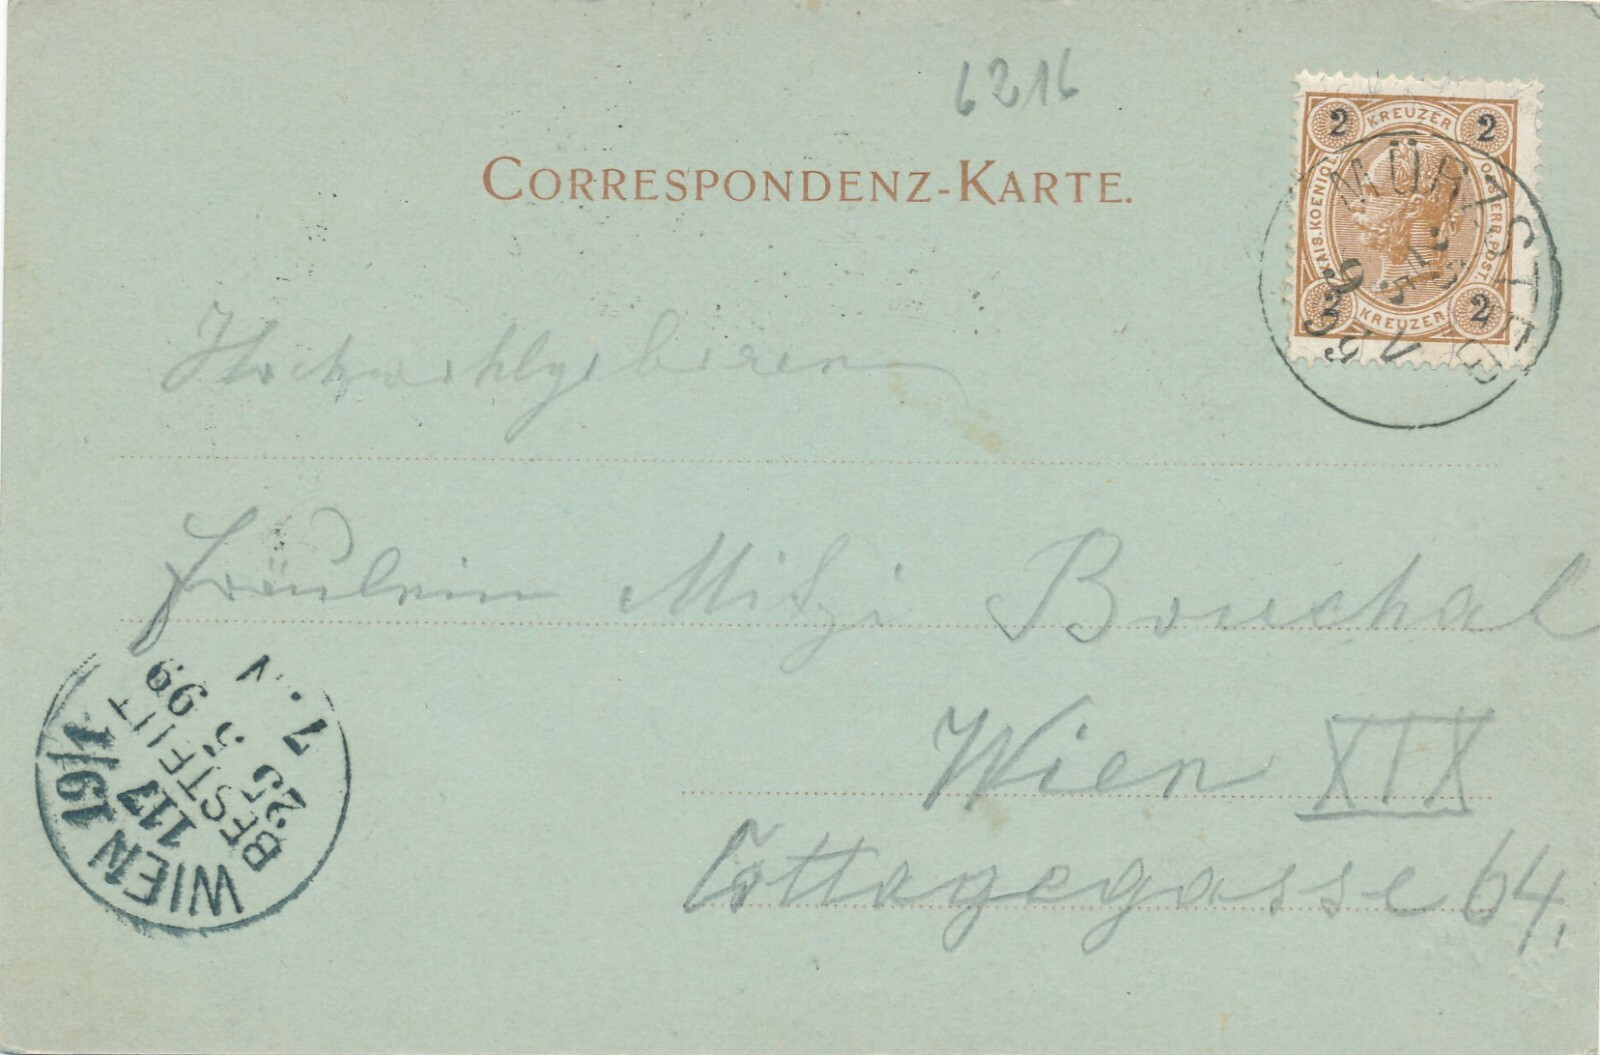 6216
CORRESPONDENZ-KARTE.
2 KREUZER 2
KAIS. KOENIGL. OESTERR. POST.
2 KREUZER 2
MÜRZSTEG
Hochwohlgeboren
Fräulein Mitzi Bouchal
Wien XIX
Cottagegasse 64.
WIEN 19/1
117
BESTELLT
25 5 99
7. V